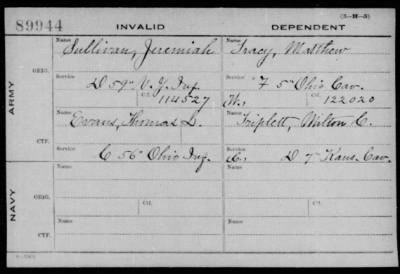 89944 INVALID DEPENDENT (3-H-5)
Name Name
Sullivan, Jeremiah Tracy, Matthew
ARMY
ORIG.
Service Service
D 59" N.Y. Inf. F 5" Ohio Cav.
Ctf. 114527 W. Ctf. 122020
Name Name
Evans, Thomas D. Triplett, Milton C.
CTF.
Service Service
C 56" Ohio Inf. D 7" Kans. Cav.
Name Name
NAVY
ORIG.
Service Ctf. Service Ctf.
Name Name
CTF.
Service Service